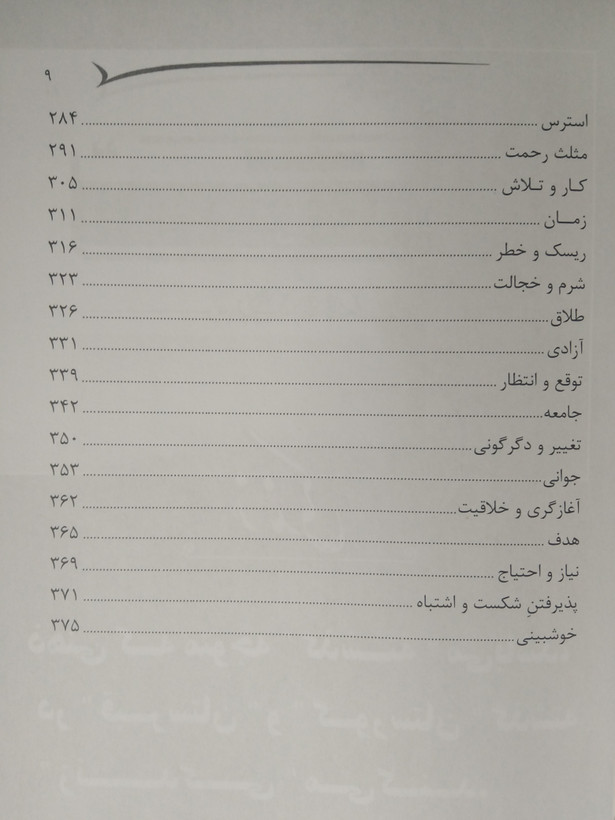 ۹
استرس ........................ ۲۸۴
مثلث رحمت ........................ ۲۹۱
کـار و تـلاش ........................ ۳۰۵
زمـــان ........................ ۳۱۱
ریسک و خطر ........................ ۳۱۶
شرم و خجالت ........................ ۳۲۳
طلاق ........................ ۳۲۶
آزادی ........................ ۳۳۱
توقع و انتظار ........................ ۳۳۹
جامعه ........................ ۳۴۲
تغییر و دگرگونی ........................ ۳۵۰
جوانی ........................ ۳۵۳
آغازگری و خلاقیت ........................ ۳۶۲
هدف ........................ ۳۶۵
نیاز و احتیاج ........................ ۳۶۹
پذیرفتنِ شکست و اشتباه ........................ ۳۷۱
خوشبینی ........................ ۳۷۵